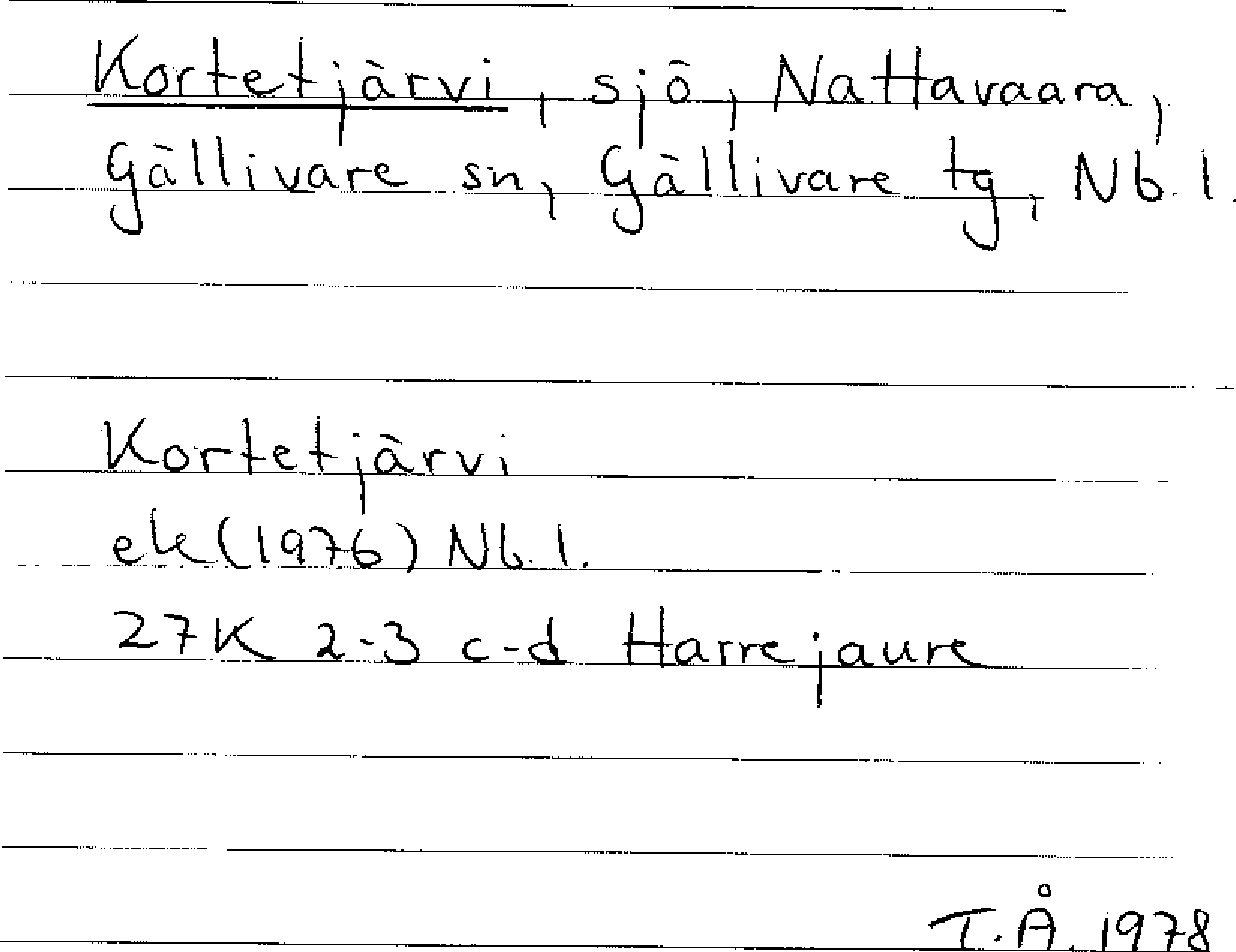 Kortetjärvi, sjö, Nattavaara,
Gällivare sn, Gällivare tg, Nb. l.
Kortetjärvi
ek (1976) Nb. l.
27K 2-3 c-d Harrejaure
T.Å. 1978